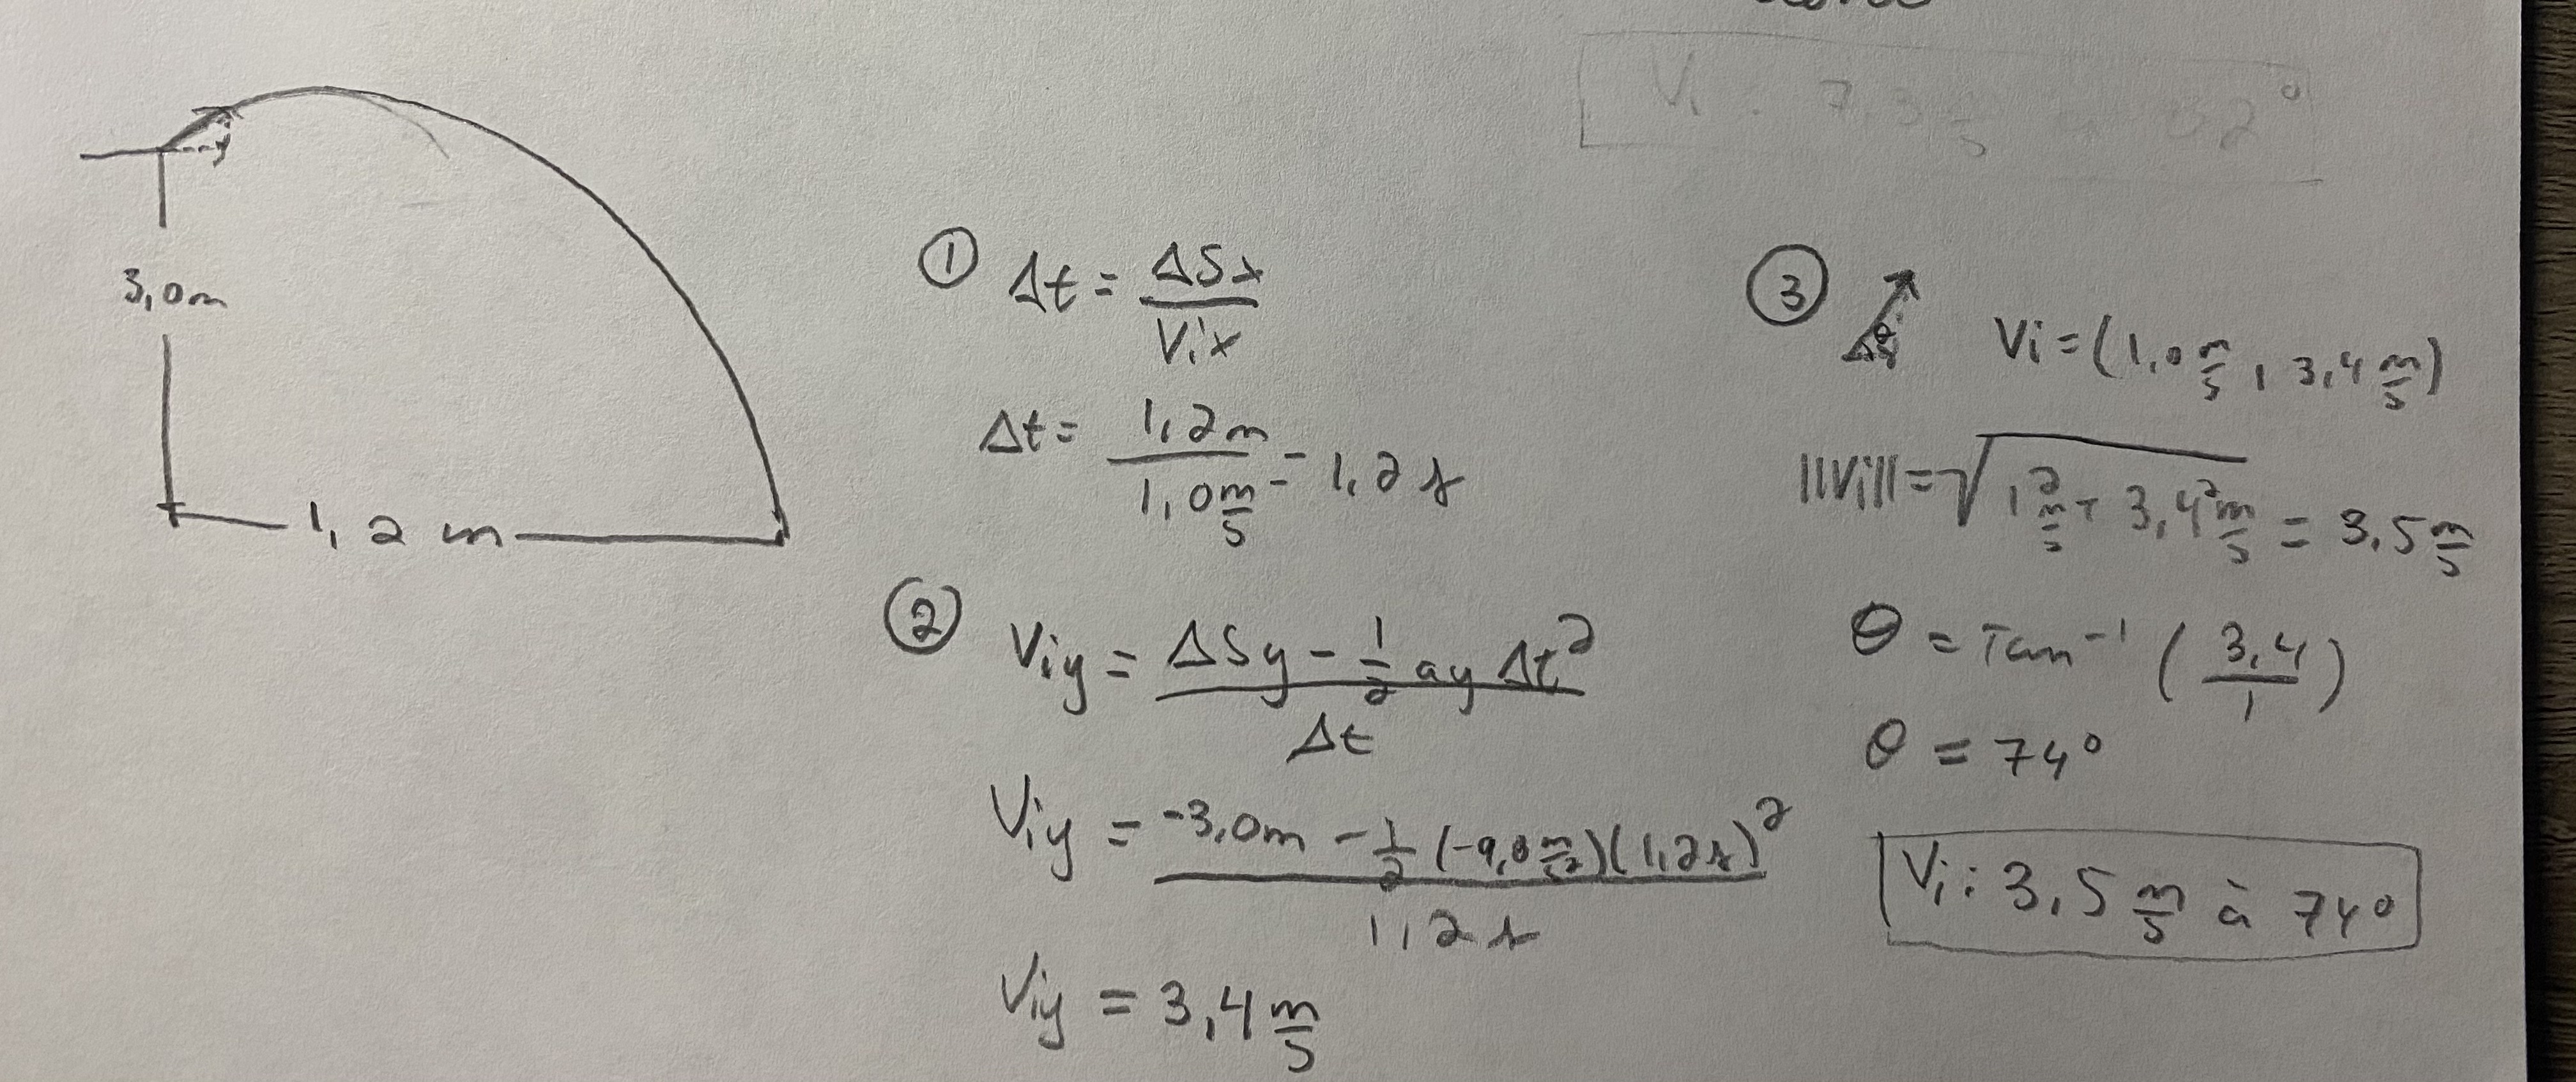 Vi : 7,3 m/s à 82°
3,0m
1,2 m
① Δt = ΔSx / Vix
Δt = 1,2m / 1,0 m/s = 1,2 s
② Viy = (ΔSy - 1/2 ay Δt²) / Δt
Viy = (-3,0m - 1/2 (-9,8 m/s²)(1,2s)²) / 1,2 s
Viy = 3,4 m/s
③ θ Vi = (1,0 m/s, 3,4 m/s)
||Vi|| = √(1² m/s + 3,4² m/s) = 3,5 m/s
θ = Tan⁻¹ (3,4 / 1)
θ = 74°
Vi : 3,5 m/s à 74°